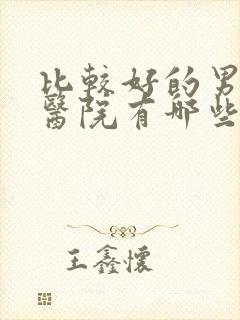 比較好的男
醫院有哪些
王鑫懷